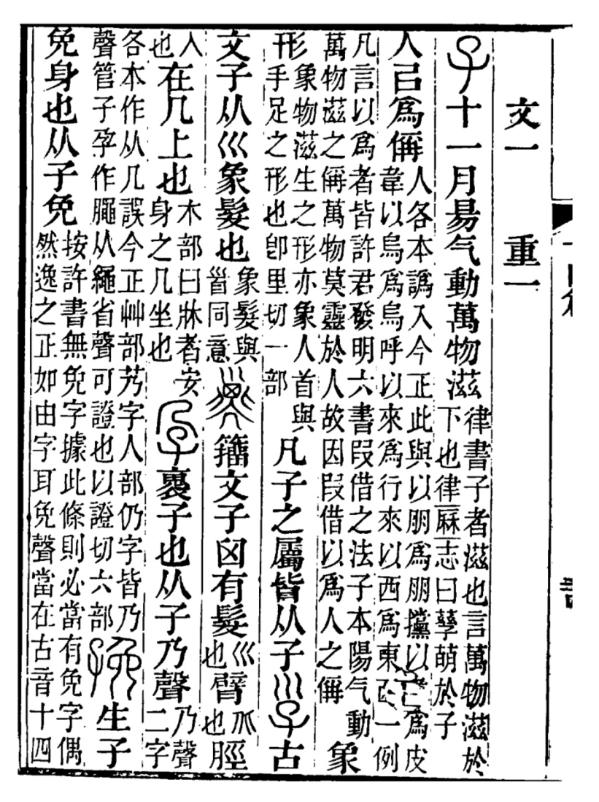 文一 重一
子十一月昜气動萬物滋律書子者滋也言萬物滋於下也律厤志曰孳萌於子
人㠯爲偁人各本譌入今正此與以朋爲朋攩以爲皮韋以烏爲烏呼以來爲行來以西爲東西一例
凡言以爲者皆許君發明六書叚借之法子本陽气動萬物滋之偁萬物莫靈於人故因叚借以爲人之偁象
形象物滋生之形亦象人首與手足之形也卽里切一部凡子之屬皆从子㜽古
文子从巛象髮也象髮與𩠐同意𢀇籒文子囟有髮巛也臂爪也脛
人也在几上也木部曰牀者安身之几坐也孕裹子也从子乃聲乃聲二字
各本作从几誤今正艸部艿字人部仍字皆乃聲管子孕作䵴从繩省聲可證也以證切六部㝃生子
免身也从子免按許書無免字據此條則必當有免字偶然逸之正如由字耳免聲當在古音十四